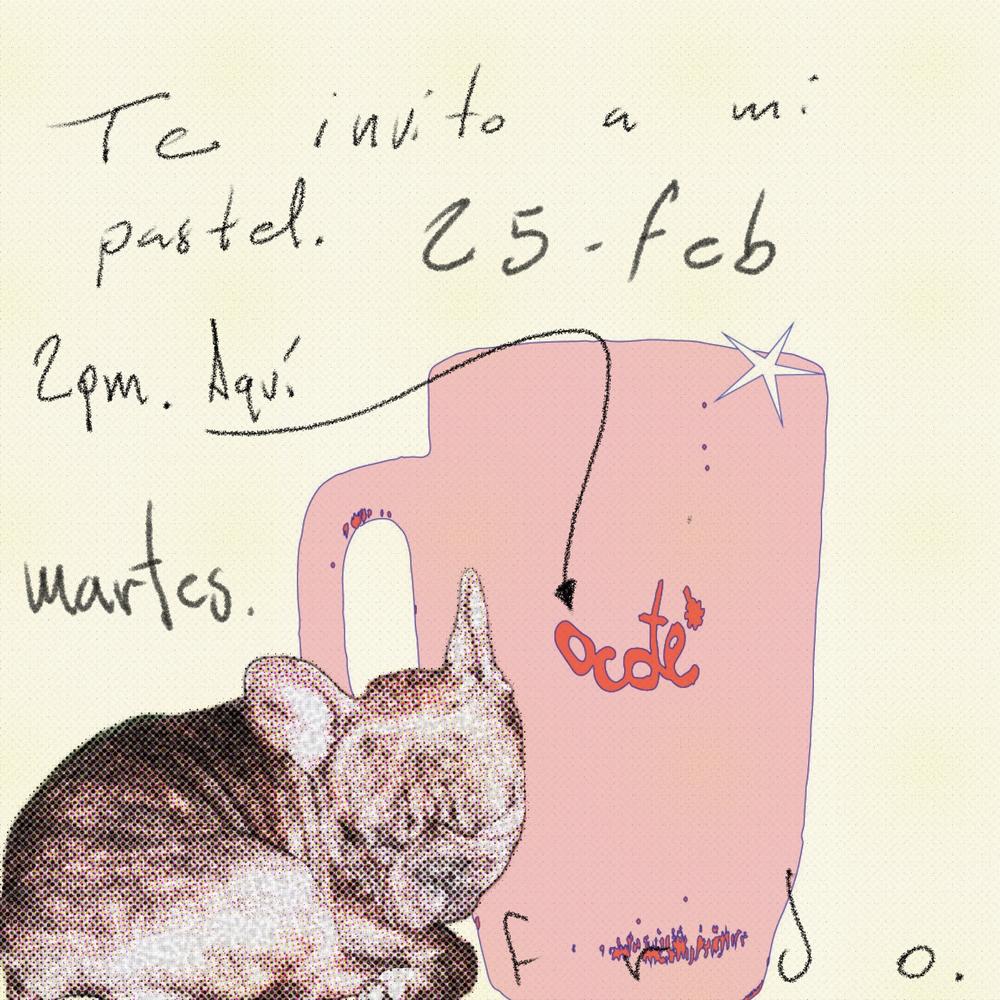 Te invito a mi
pastel. 25-feb
2pm. Aquí
martes.
ocote